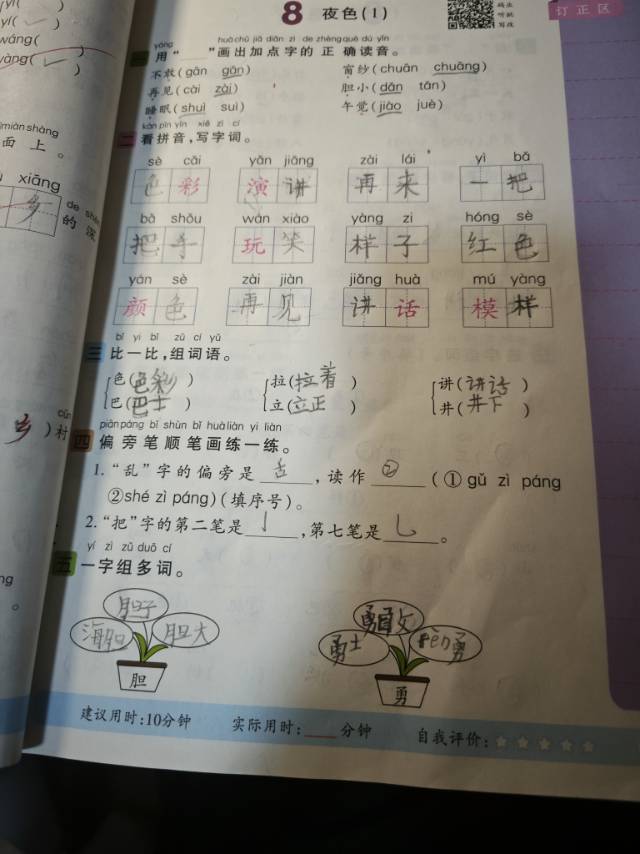 8 夜色(1)
订正区
yòng huà chū jiā diǎn zì de zhèng què dú yīn
一 用“——”画出加点字的正确读音。
不敢(gān gǎn) 窗纱(chuān chuāng)
再见(cài zài) 胆小(dǎn tǎn)
睡眠(shuì suì) 午觉(jiào juè)
kàn pīn yīn xiě zì cí
二 看拼音,写字词。
sè cǎi yǎn jiǎng zài lái yì bǎ
色彩 演讲 再来 一把
bǎ shǒu wán xiào yàng zi hóng sè
把手 玩笑 样子 红色
yán sè zài jiàn jiǎng huà mú yàng
颜色 再见 讲话 模样
bǐ yi bǐ zǔ cí yǔ
三 比一比,组词语。
色(色彩) 拉(拉着) 讲(讲话)
巴(巴士) 立(立正) 井(井下)
piān páng bǐ shùn bǐ huà liàn yi liàn
四 偏旁笔顺笔画练一练。
1.“乱”字的偏旁是 舌 ,读作 ② (①gǔ zì páng
②shé zì páng)(填序号)。
2.“把”字的第二笔是 亅 ,第七笔是 乚 。
yí zì zǔ duō cí
五 一字组多词。
胆子 勇敢
海胆 胆大 勇士 勇
胆 勇
建议用时:10分钟 实际用时: 分钟 自我评价:
yì(
yí( )
wáng(
yàng( )
miàn shàng
面上。
xiāng
乡
de
的 深
cūn
乡)村